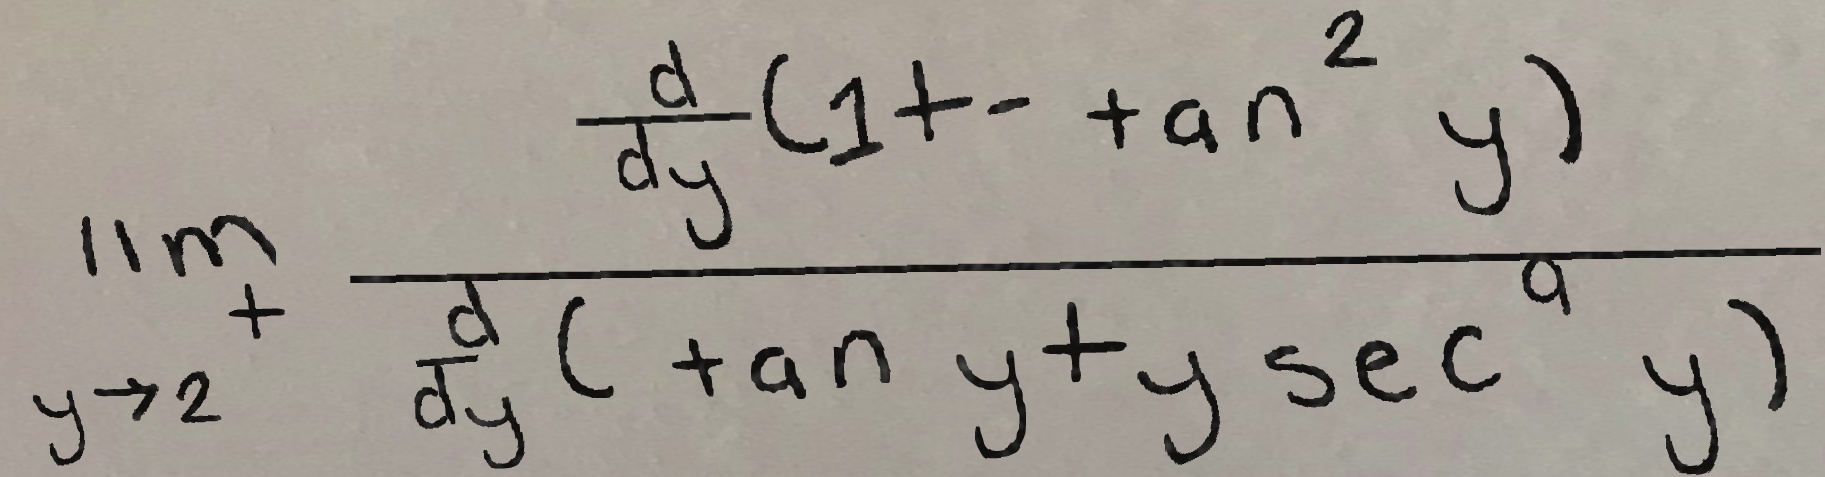 \lim_{y \to 2^+} \frac{\frac{d}{dy}(1 + - \tan^2 y)}{\frac{d}{dy}(\tan y + y \sec^9 y)}